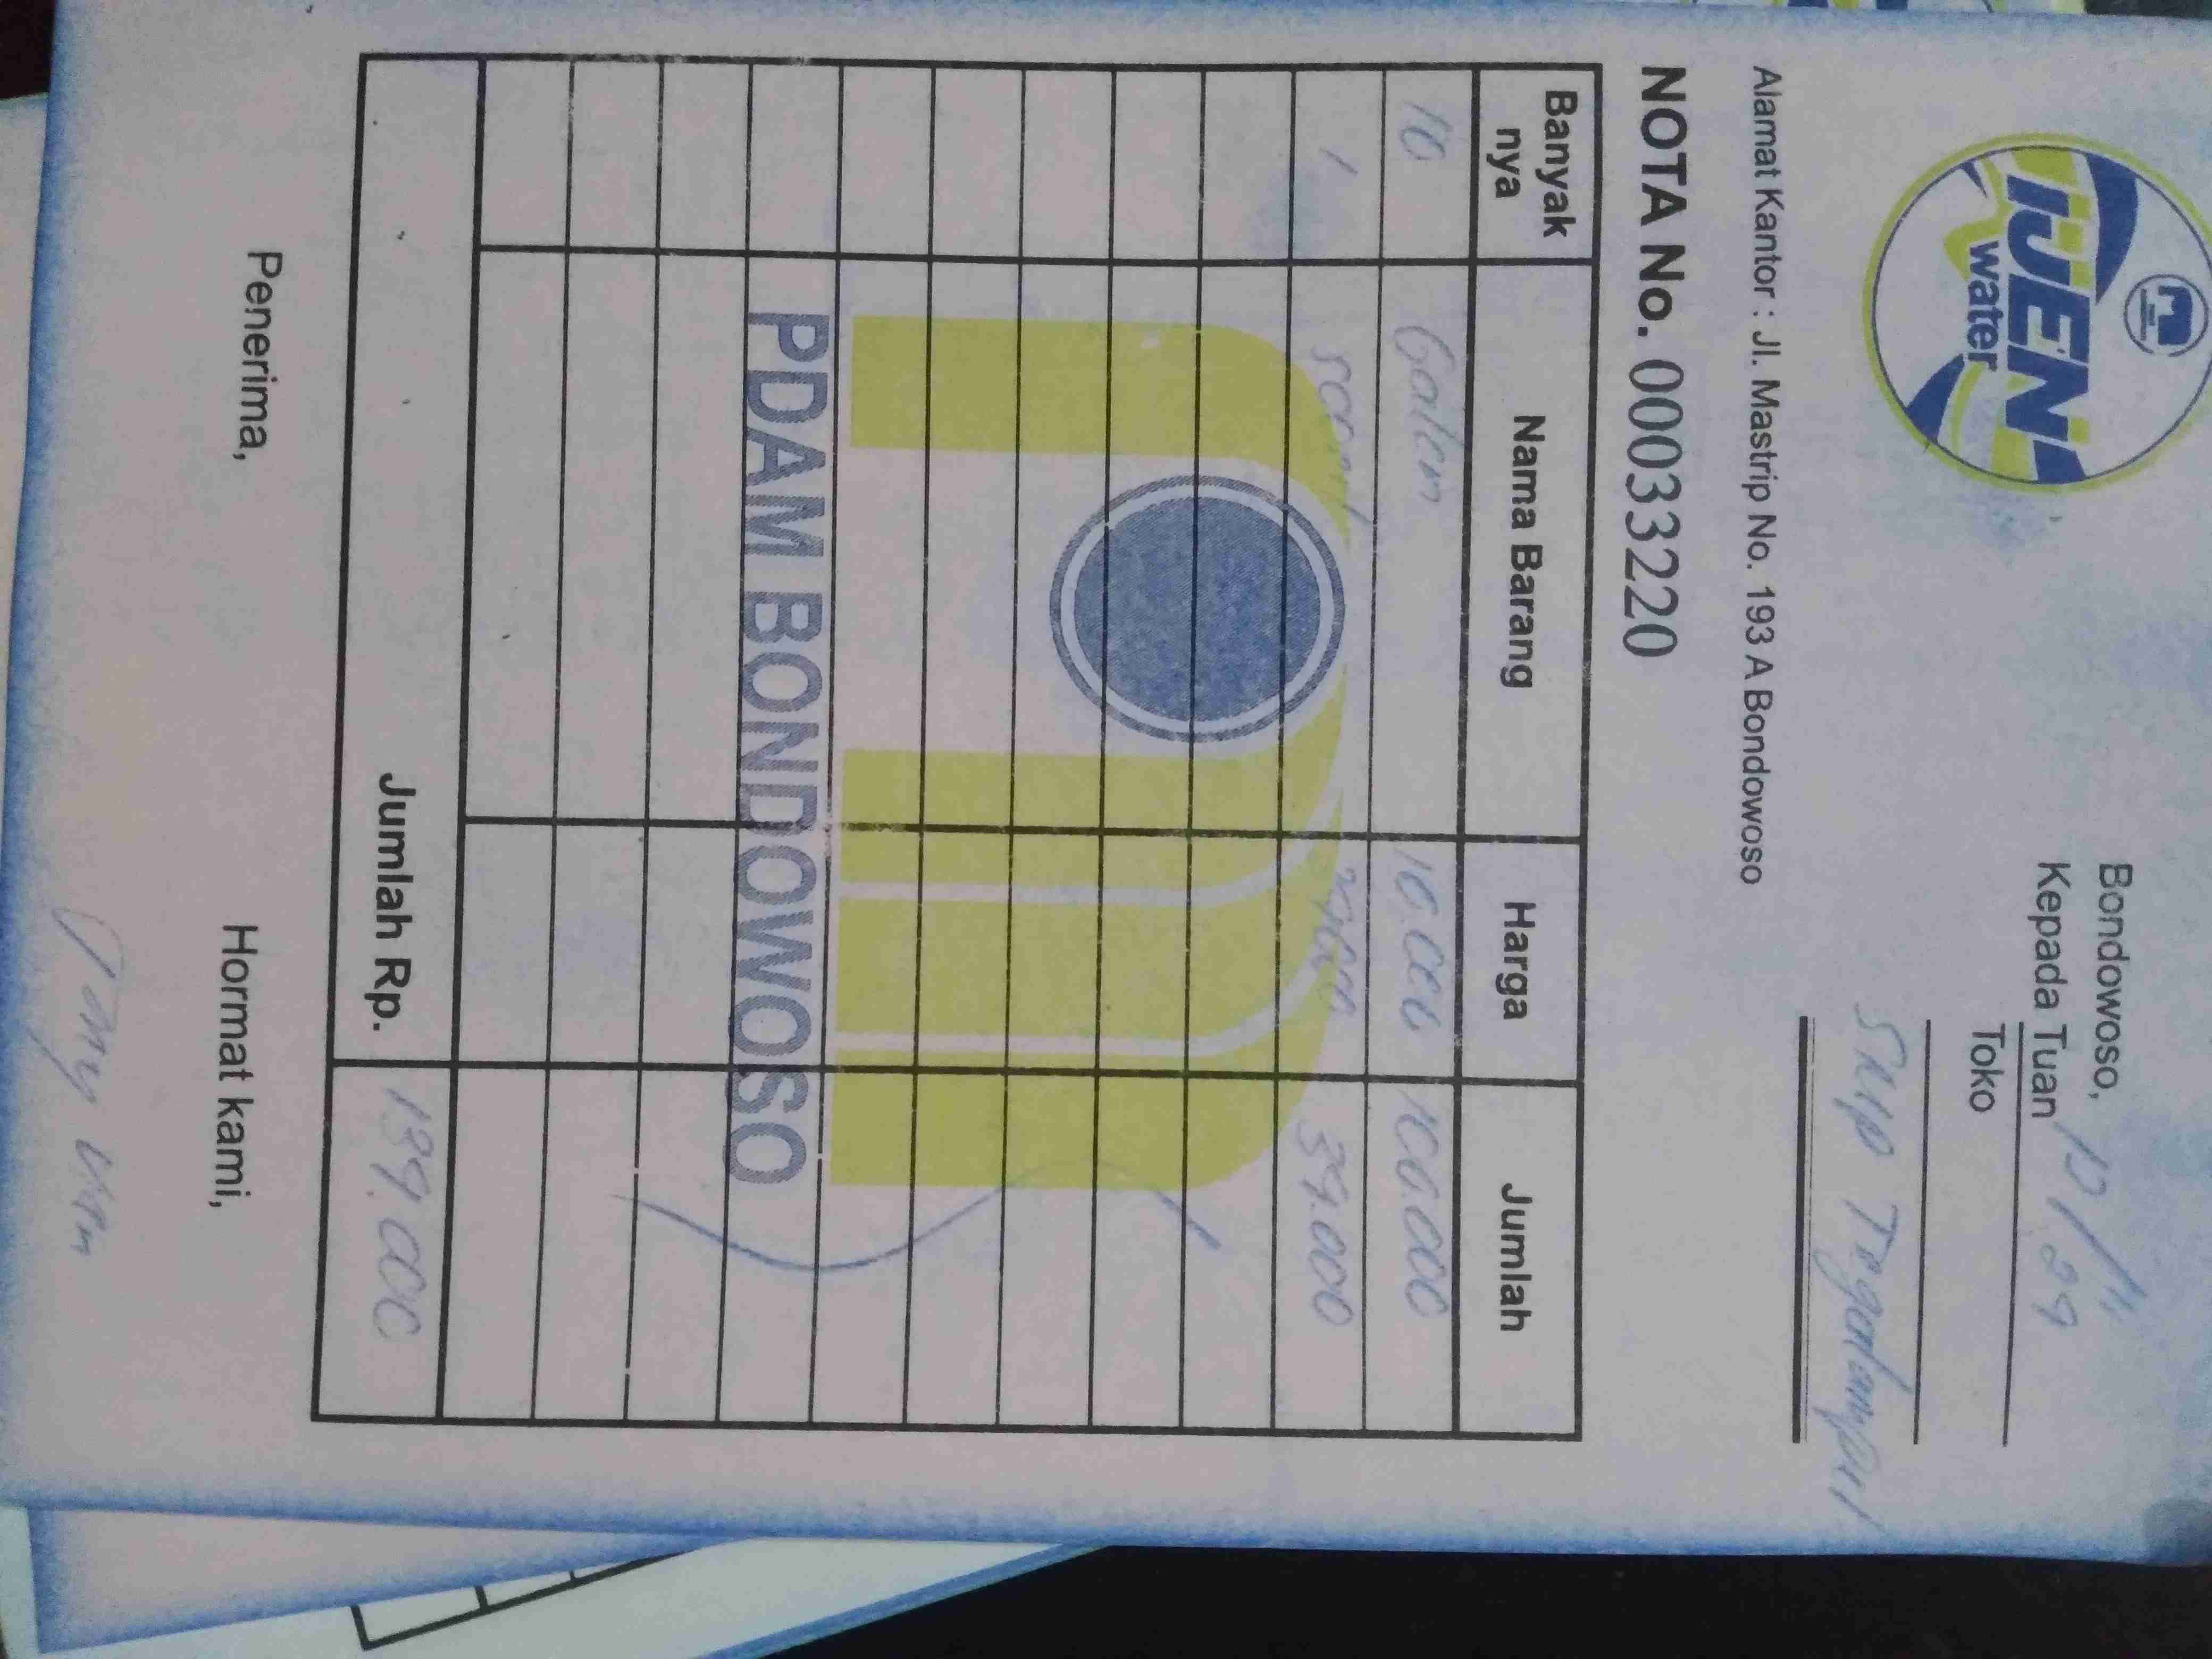 IJEN
water
Bondowoso, 12/11 24
Kepada Tuan
Toko
SMP Tegalampel
Alamat Kantor : Jl. Mastrip No. 193 A Bondowoso
NOTA No. 00033220
Banyak nya Nama Barang Harga Jumlah
10 Galon 10.000 100.000
1 39.000
PDAM BONDOWOSO
Jumlah Rp. 139.000
Penerima, Hormat kami,